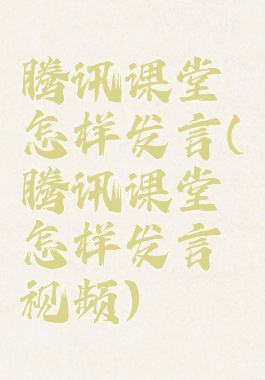 腾讯课堂
怎样发言(
腾讯课堂
怎样发言
视频)